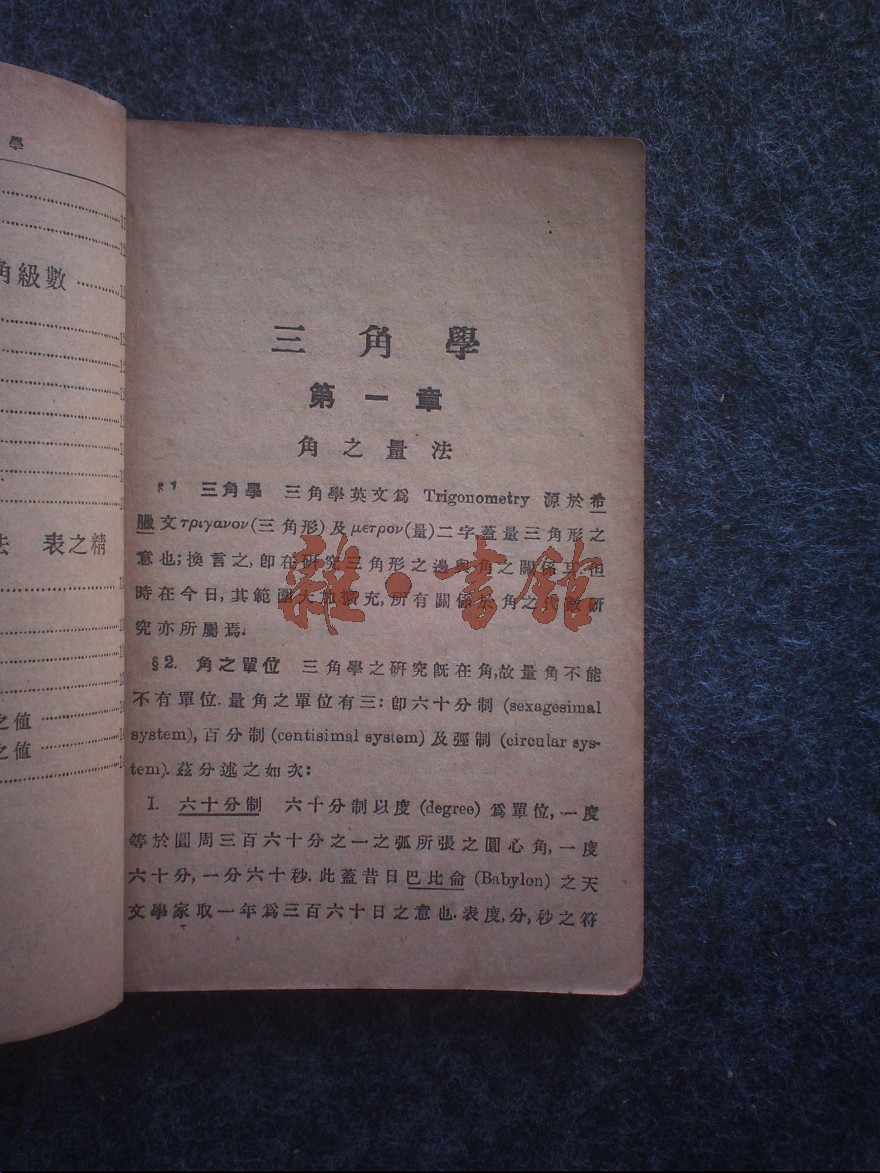 學
角級數
法 表之精
之値
之値
三角學
第一章
角之量法
§1 三角學 三角學英文爲 Trigonometry 源於希
臘文τριγανον(三角形)及μετρον(量)二字蓋量三角形之
意也;換言之,卽在硏究三角形之邊與角之關係耳.但
時在今日,其範圍大加擴充,所有關係於角之代數硏
究亦所屬焉.
§2. 角之單位 三角學之硏究旣在角,故量角不能
不有單位.量角之單位有三:卽六十分制 (sexagesimal
system),百分制 (centisimal system) 及弳制 (circular sys-
tem).茲分述之如次:
I. 六十分制 六十分制以度 (degree) 爲單位,一度
等於圓周三百六十分之一之弧所張之圓心角,一度
六十分,一分六十秒.此蓋昔日巴比侖 (Babylon) 之天
文學家取一年爲三百六十日之意也.表度,分,秒之符
雜·書館